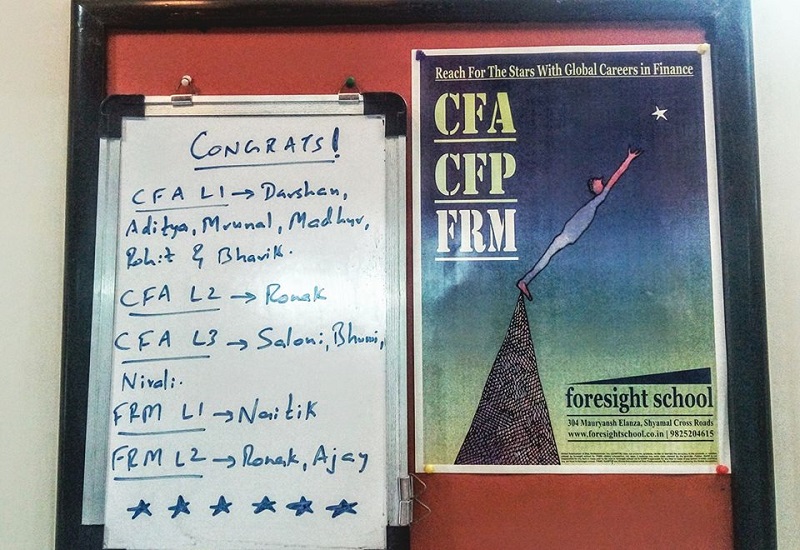 CONGRATS!
CFA L1 → Darshan,
Aditya, Mrunal, Madhur,
Rohit & Bhavik.
CFA L2 → Ronak
CFA L3 → Saloni, Bhumi,
Nirali.
FRM L1 → Naitik
FRM L2 → Ronak, Ajay
Reach For The Stars With Global Careers in Finance
CFA
CFP
FRM
foresight school
304 Mauryansh Elanza, Shyamal Cross Roads
www.foresightschool.co.in | 9825204615